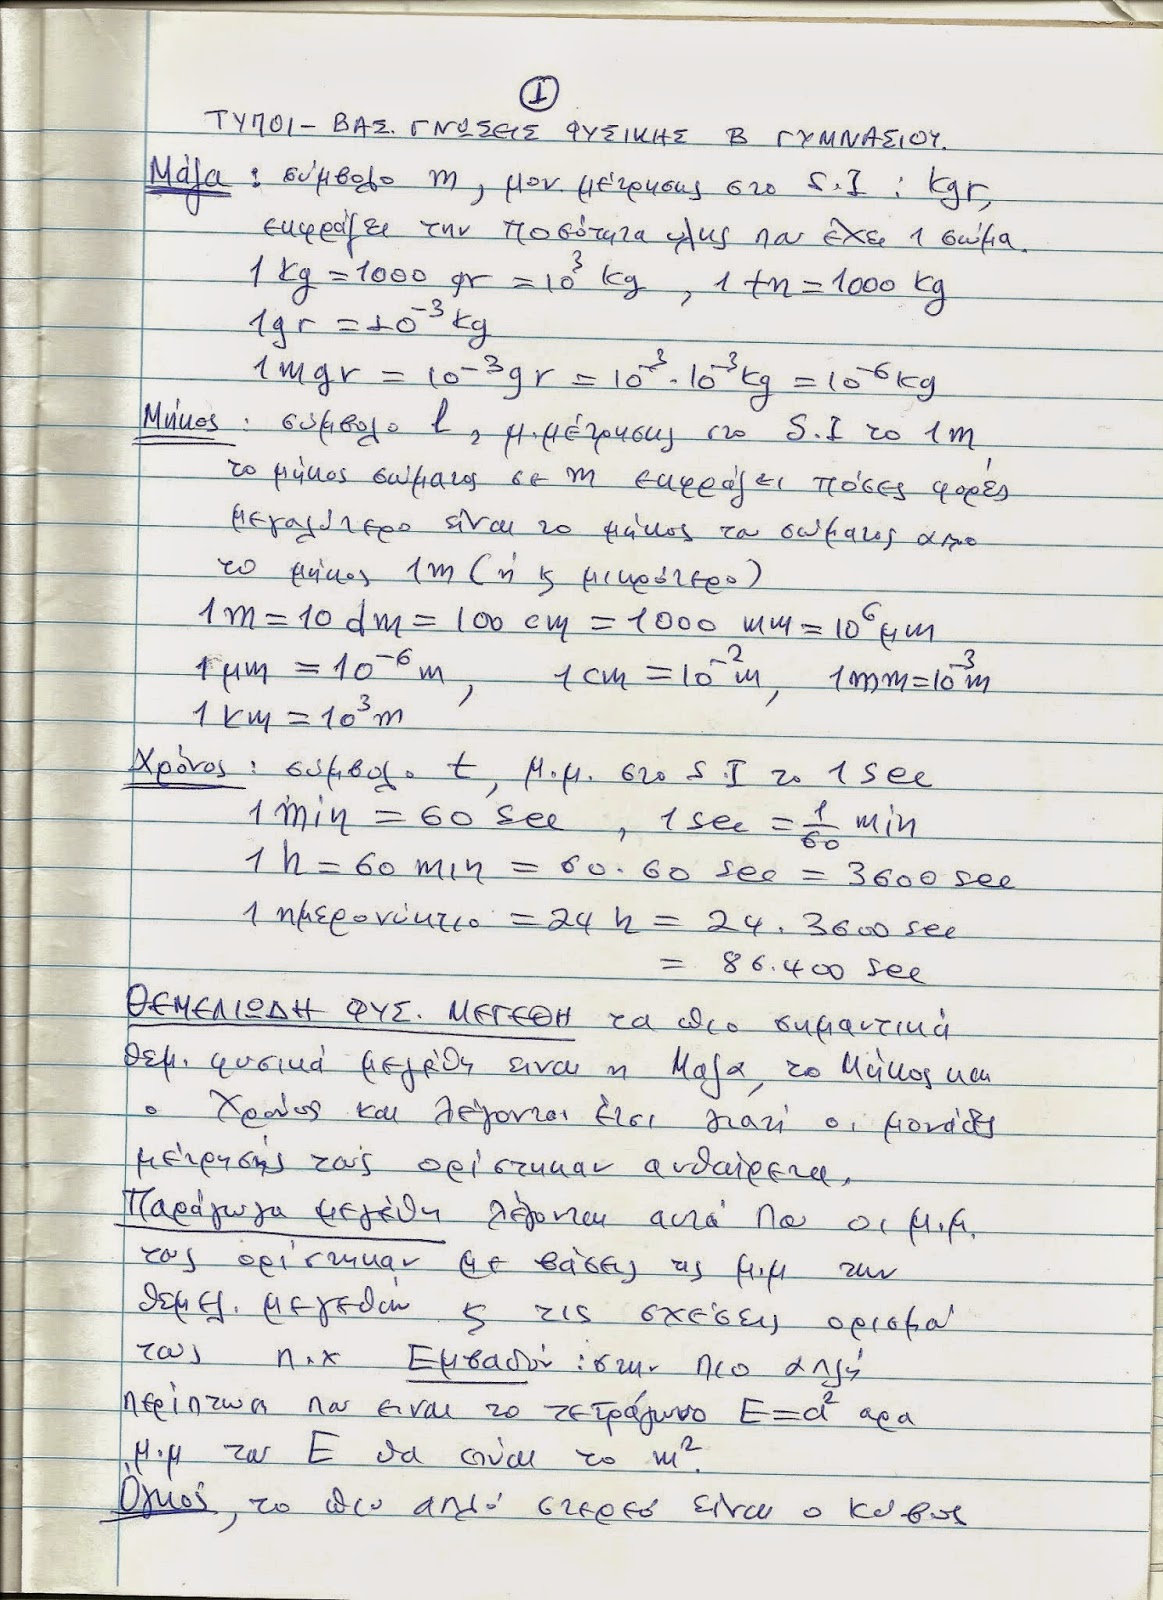 1
ΤΥΠΟΙ - ΒΑΣ. ΓΝΩΣΕΙΣ ΦΥΣΙΚΗΣ Β ΓΥΜΝΑΣΙΟΥ.
Μάζα : σύμβολο m, μον. μέτρησης στο S.I : kgr,
εκφράζει την ποσότητα ύλης που έχει 1 σώμα.
1 kg = 1000 gr = 10³ kg , 1 tn = 1000 kg
1gr = 10⁻³ kg
1mgr = 10⁻³gr = 10⁻³·10⁻³kg = 10⁻⁶kg
Μήκος : σύμβολο l, μ.μέτρησης στο S.I το 1m,
το μήκος σώματος σε m εκφράζει πόσες φορές
μεγαλύτερο είναι το μήκος του σώματος απο
το μήκος 1m (ή ϛ μικρότερο)
1m = 10 dm = 100 cm = 1000 mm = 10⁶μm
1μm = 10⁻⁶m, 1cm = 10⁻²m, 1mm=10⁻³m
1km = 10³m
Χρόνος : σύμβολο t, μ.μ. στο S.I το 1sec
1min = 60 sec , 1sec = 1/60 min
1h = 60 min = 60·60 sec = 3600 sec
1 ημερονύκτιο = 24 h = 24.3600 sec
= 86.400 sec
ΘΕΜΕΛΙΩΔΗ ΦΥΣ. ΜΕΓΕΘΗ τα πιο σημαντικά
θεμ. φυσικά μεγέθη ειναι η Μαζα, το Μήκος και
ο Χρόνος και λέγονται έτσι γιατί οι μονάδες
μέτρησής τους ορίστηκαν αυθαίρετα.
Παράγωγα μεγέθη λέγονται αυτά που οι μ.μ.
τους ορίστηκαν με βάσεις τις μ.μ των
θεμελ. μεγεθών ϛ τις σχέσεις ορισμού
τους π.χ Εμβαδόν : στην πιο απλή
περίπτωση που ειναι το τετράγωνο E=a² αρα
μ.μ του Ε θα είναι το m².
Όγκος, το πιο απλό στερεό είναι ο κύβος